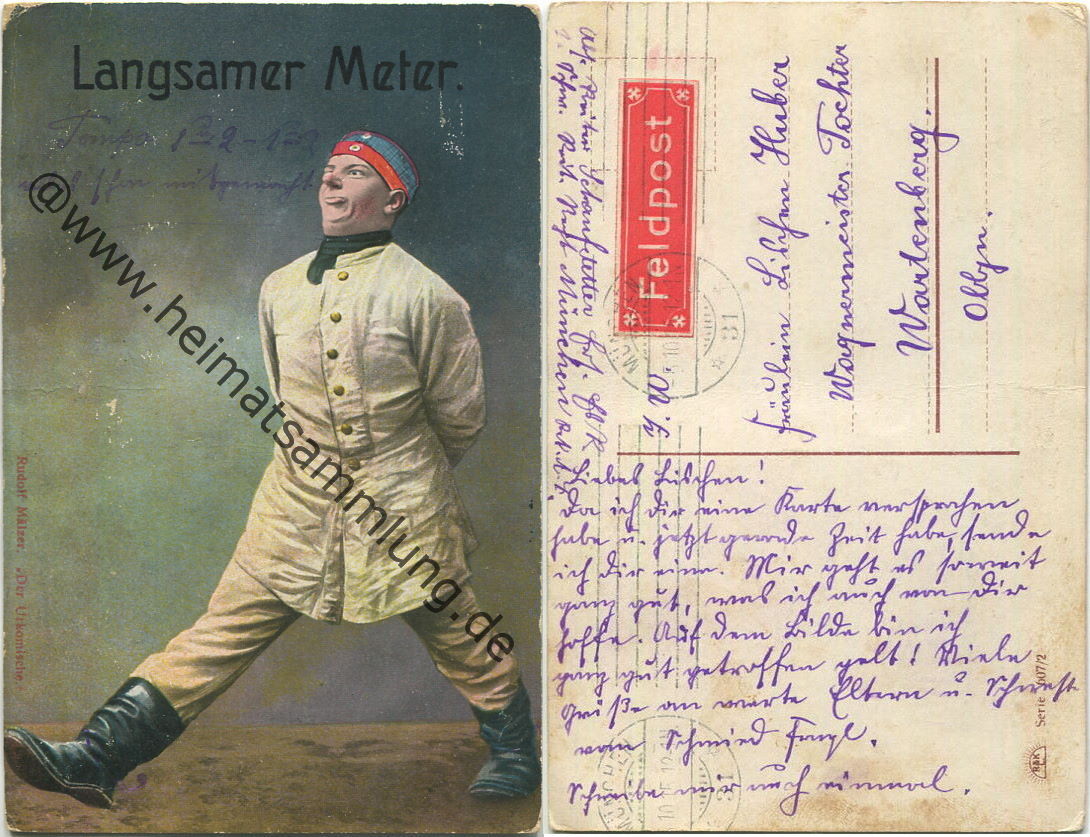 Langsamer Meter.
Tempo 1 2 - 1
schon mitgemacht
@www.heimatsammlung.de
Rudolf Mälzer. "Der Urkomische."
Feldpost
MÜNCHEN
31
Fräulein Lischen Huber
Wagnermeisters Tochter
Wartenberg.
Obbyn.
Liebes Lischen!
Da ich dir eine Karte versprochen
habe u. jetzt gerade Zeit habe, sende
ich dir eine. Mir geht es soweit
ganz gut, was ich auch von Dir
hoffe. Auf dem Bilde bin ich
ganz gut getroffen gelt! Viele
Grüße an werte Eltern u. Schwest
vom Schmied
Schreibe mir noch einmal.
MÜNCHEN
31
Serie 607/2
R&K